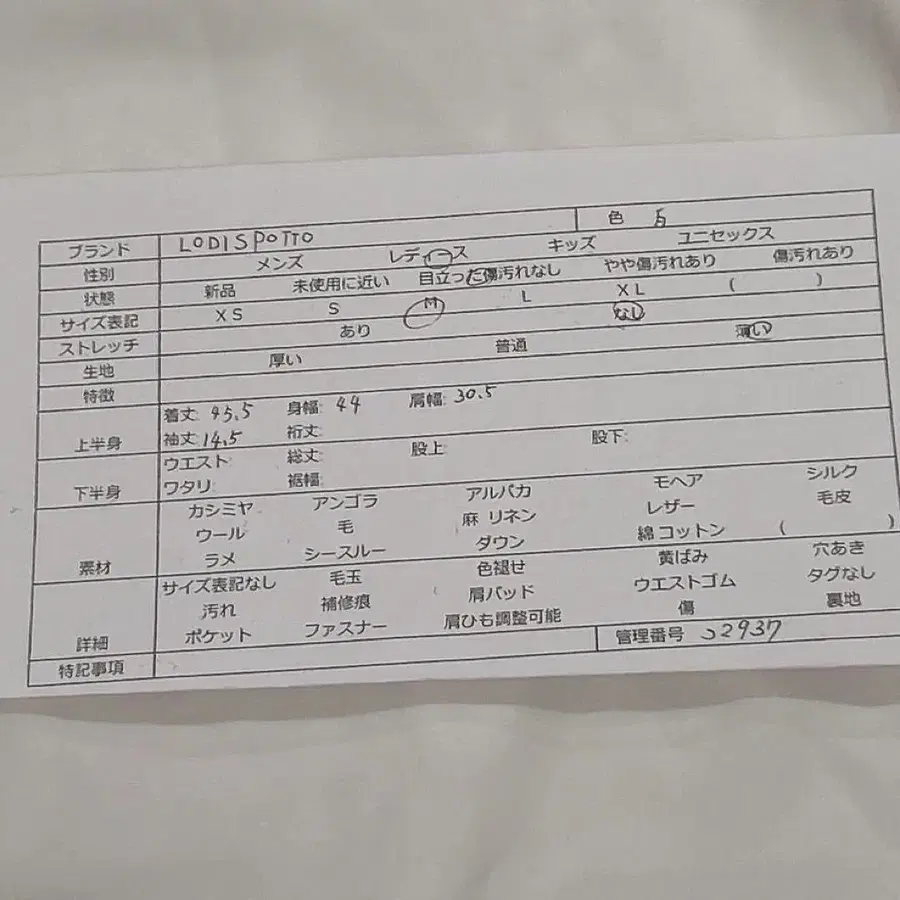 ブランド LODISPOTTO 色 白
性別 メンズ レディース キッズ ユニセックス
状態 新品 未使用に近い 目立った傷汚れなし やや傷汚れあり 傷汚れあり
サイズ表記 XS S M L XL ( )
ストレッチ あり なし
生地 厚い 普通 薄い
特徴
上半身 着丈: 45.5 身幅: 44 肩幅: 30.5
袖丈: 14.5 裄丈:
下半身 ウエスト: 総丈: 股上: 股下:
ワタリ: 裾幅:
素材 カシミヤ アンゴラ アルパカ モヘア シルク
ウール 毛 麻 リネン レザー 毛皮
ラメ シースルー ダウン 綿 コットン ( )
詳細 サイズ表記なし 毛玉 色褪せ 黄ばみ 穴あき
汚れ 補修痕 肩パッド ウエストゴム タグなし
ポケット ファスナー 肩ひも調整可能 傷 裏地
特記事項 管理番号 2937